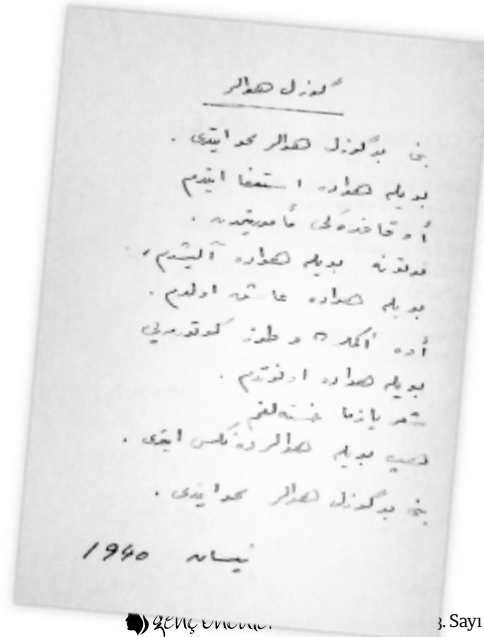 گوزل هوالر
بنى بو گوزل هوالر محو ايتدى .
بويله هواده استعفا ايتدم
أوقافده كى مأموريتمدن .
توتونه بويله هواده آليشدم ،
بويله هواده عاشق اولدم .
أوه أكمك و طوز گوتورمه يى
بويله هواده اونوتدم .
شعر يازما خسته لغم
هپ بويله هوالرده نكس ايتدى .
بنى بو گوزل هوالر محو ايتدى .
نيسان ١٩٤٠
genç öncüler
3. Sayı